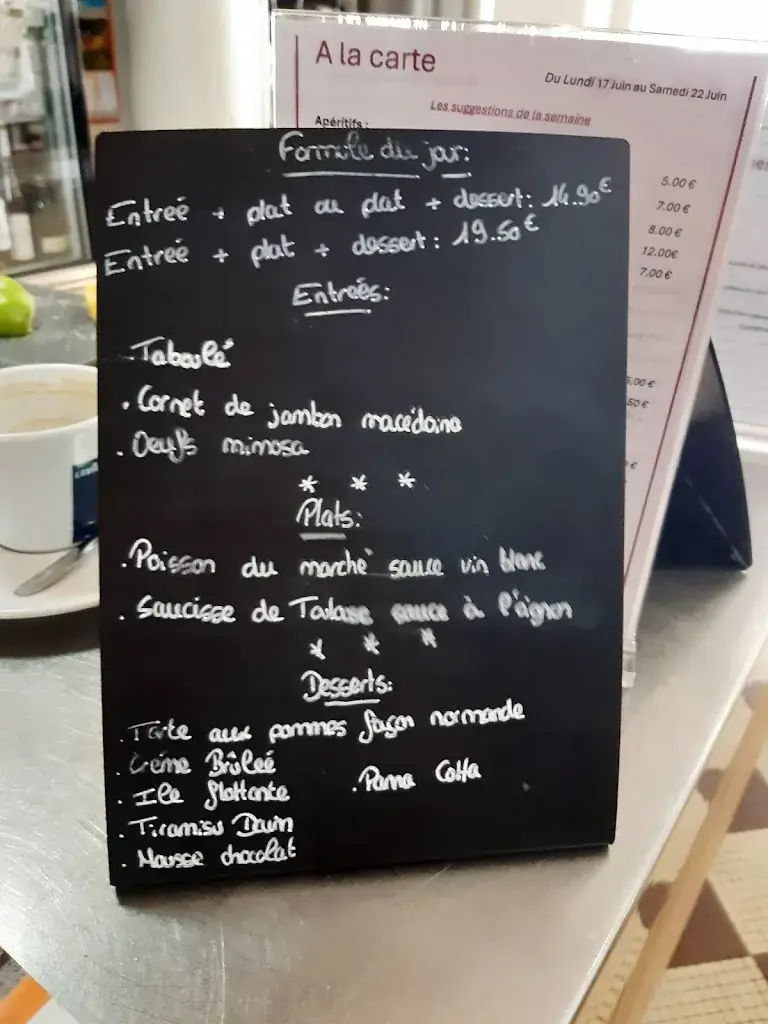 A la carte
Du Lundi 17 Juin au Samedi 22 Juin
Les suggestions de la semaine
Apéritifs :
5.00 €
7.00 €
8.00 €
12.00€
7.00 €
5,00 €
50 €
€
Formule du jour:
Entreé + plat ou plat + dessert: 14.90€
Entreé + plat + dessert: 19.50€
Entreés:
. Taboulé
. Cornet de jambon macédoine
. Oeufs mimosa
* * *
Plats:
. Poisson du marché sauce vin blanc
. Saucisse de Toulouse sauce à l'oignon
* * *
Desserts:
. Tarte aux pommes façon normande
. Crème Brûleé
. Panna Cotta
. Ile flottante
. Tiramisu
. Mousse chocolat